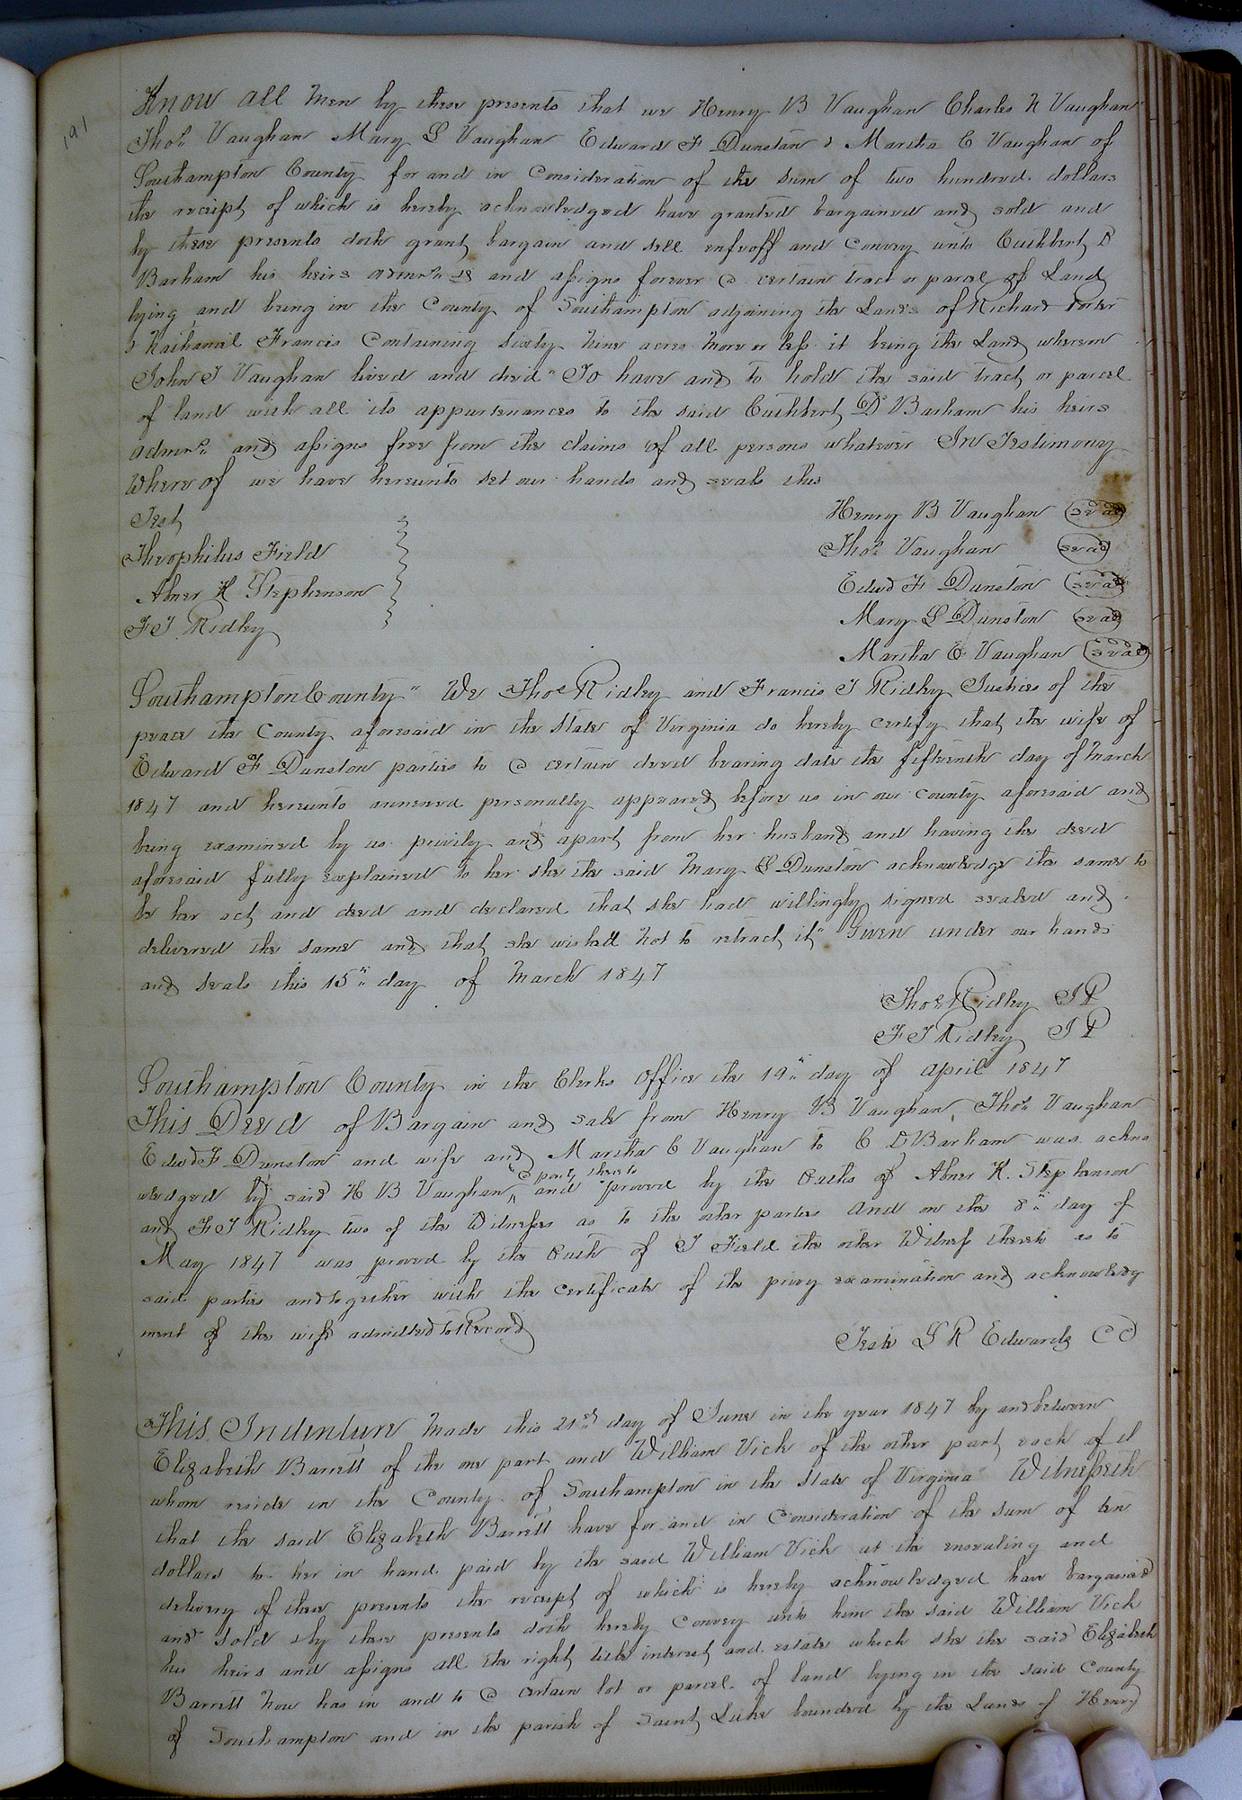 191
Know all Men by these presents that we Henry B Vaughan Charles N Vaughan
Thos. Vaughan Mary S Vaughan Edward F Dunstan & Martha E Vaughan of
Southampton County for and in Consideration of the sum of two hundred dollars
the receipt of which is hereby acknowledged have granted bargained and sold and
by these presents doth grant bargain and sell enfeoff and convey unto Cuthbert D
Barham his heirs and assigns forever a certain tract or parcel of Land
lying and being in the County of Southampton adjoining the Lands of Richard Porter
& Nathaniel Francis Containing sixty Nine acres More or less it being the Land whereon
John T Vaughan lived and died" To have and to hold the said tract or parcel
of land with all its appurtenances to the said Cuthbert D Barham his heirs
admrs. and assigns free from the claims of all persons whatever In Testimony
Where of we have hereunto set our hands and seals this
Test
Henry B Vaughan (seal)
Theophilus Field
Thos. Vaughan (seal)
Abner K Stephenson
Edwd F Dunston (seal)
F T Ridley
Mary S Dunston (seal)
Martha E Vaughan (seal)
Southampton County" We Thos Ridley and Francis T Ridley Justices of the
peace the County aforesaid in the State of Virginia do hereby certify that the wife of
Edward F Dunston parties to a certain deed bearing date the fifteenth day of March
1847 and hereunto annexed personally appeared before us in our County aforesaid and
being examined by us privily and apart from her husband and having the deed
aforesaid fully explained to her she the said Mary S Dunston acknowledge the same to
be her act and deed and declared that she had willingly signed sealed and
delivered the same and that she wished Not to retract it" Given under our hands
and seals this 15th day of March 1847
Thos Ridley J P
F T Ridley J P
Southampton County in the Clerks Office the 19th day of April 1847
This Deed of Bargain and sale from Henry B Vaughan, Thos Vaughan
Edwd F Dunston and wife and Martha E Vaughan to C D Barham was ackno
wledged by said H B Vaughan a party thereto and proved by the Oaths of Abner K. Stephenson
and F T Ridley two of the Witnesses as to the other parties And on the 8th day of
May 1847 was proved by the Oath of T Field the other Witness thereto as to
said parties and together with the certificate of the privy examination and acknowledg
ment of the wife admitted to Record
Teste L R Edwards C C
This Indenture Made this 21st day of June in the year 1847 by and between
Elizabeth Barrett of the one part and William Vick of the other part each of
whom reside in the County of Southampton in the State of Virginia" Witnesseth
that the said Elizabeth Barrett have for and in Consideration of the sum of ten
dollars to her in hand paid by the said William Vick at the ensealing and
delivery of these presents the receipt of which is hereby acknowledged have bargained
and sold & by these presents doth hereby Convey unto him the said William Vick
his heirs and assigns all the right title interest and estate which she the said Elizabeth
Barrett Now has in and to a certain lot or parcel of land lying in the said County
of Southampton and in the parish of Saint Luke bounded by the Lands of Henry